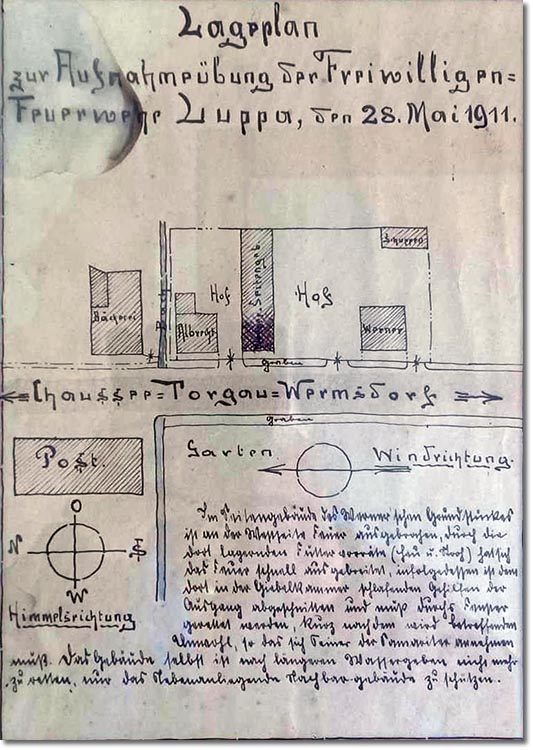 Lageplan
zur Aufnahmeübung der Freiwilligen=
Feuerwehr Luppa, den 28. Mai 1911.
Schuppen
Bäckerei
Albrecht
Hof
Seitengeb.
Hof
Werner
Graben
Chaussee=Torgau=Wermsdorf
Graben
Post.
Garten.
Windrichtung.
O
N
S
W
Himmelsrichtung
Im Seitengebäude des Werner'schen Grundstückes
ist an der Westseite Feuer ausgebrochen, durch die
dort lagernden Futtervorräte (Heu u. Stroh) hat sich
das Feuer schnell ausgebreitet, infolgedessen ist dem
dort in der Giebelkammer schlafenden Gehilfen der
Ausgang abgeschnitten und muß durchs Fenster
gerettet werden, kurz nachdem wird betreffender
Unwohl, so das sich seiner die Samariter annehmen
muß. Das Gebäude selbst ist nach längeren Wassergeben nicht mehr
zu retten, nur das Nebenanliegende Nachbargebäude zu schützen.